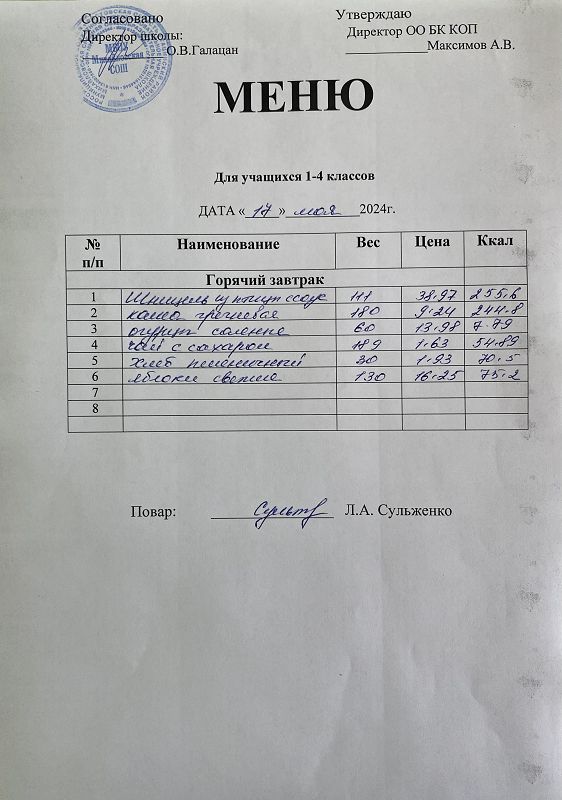 Согласовано Утверждаю
Директор школы: Директор ОО БК КОП
О.В.Галацан Максимов А.В.
МБОУ
СОШ
МЕНЮ
Для учащихся 1-4 классов
ДАТА «17» мая 2024г.
№ п/п Наименование Вес Цена Ккал
Горячий завтрак
1 Шницель 111 38.97 255.6
2 каша гречневая 180 9.24 244.8
3 огурцы соленые 60 13.98 7.79
4 чай с сахаром 189 1.63 54.89
5 хлеб пшеничный 30 1.93 70.5
6 яблоки свежие 130 16.25 75.2
7
8
Повар: Л.А. Сульженко